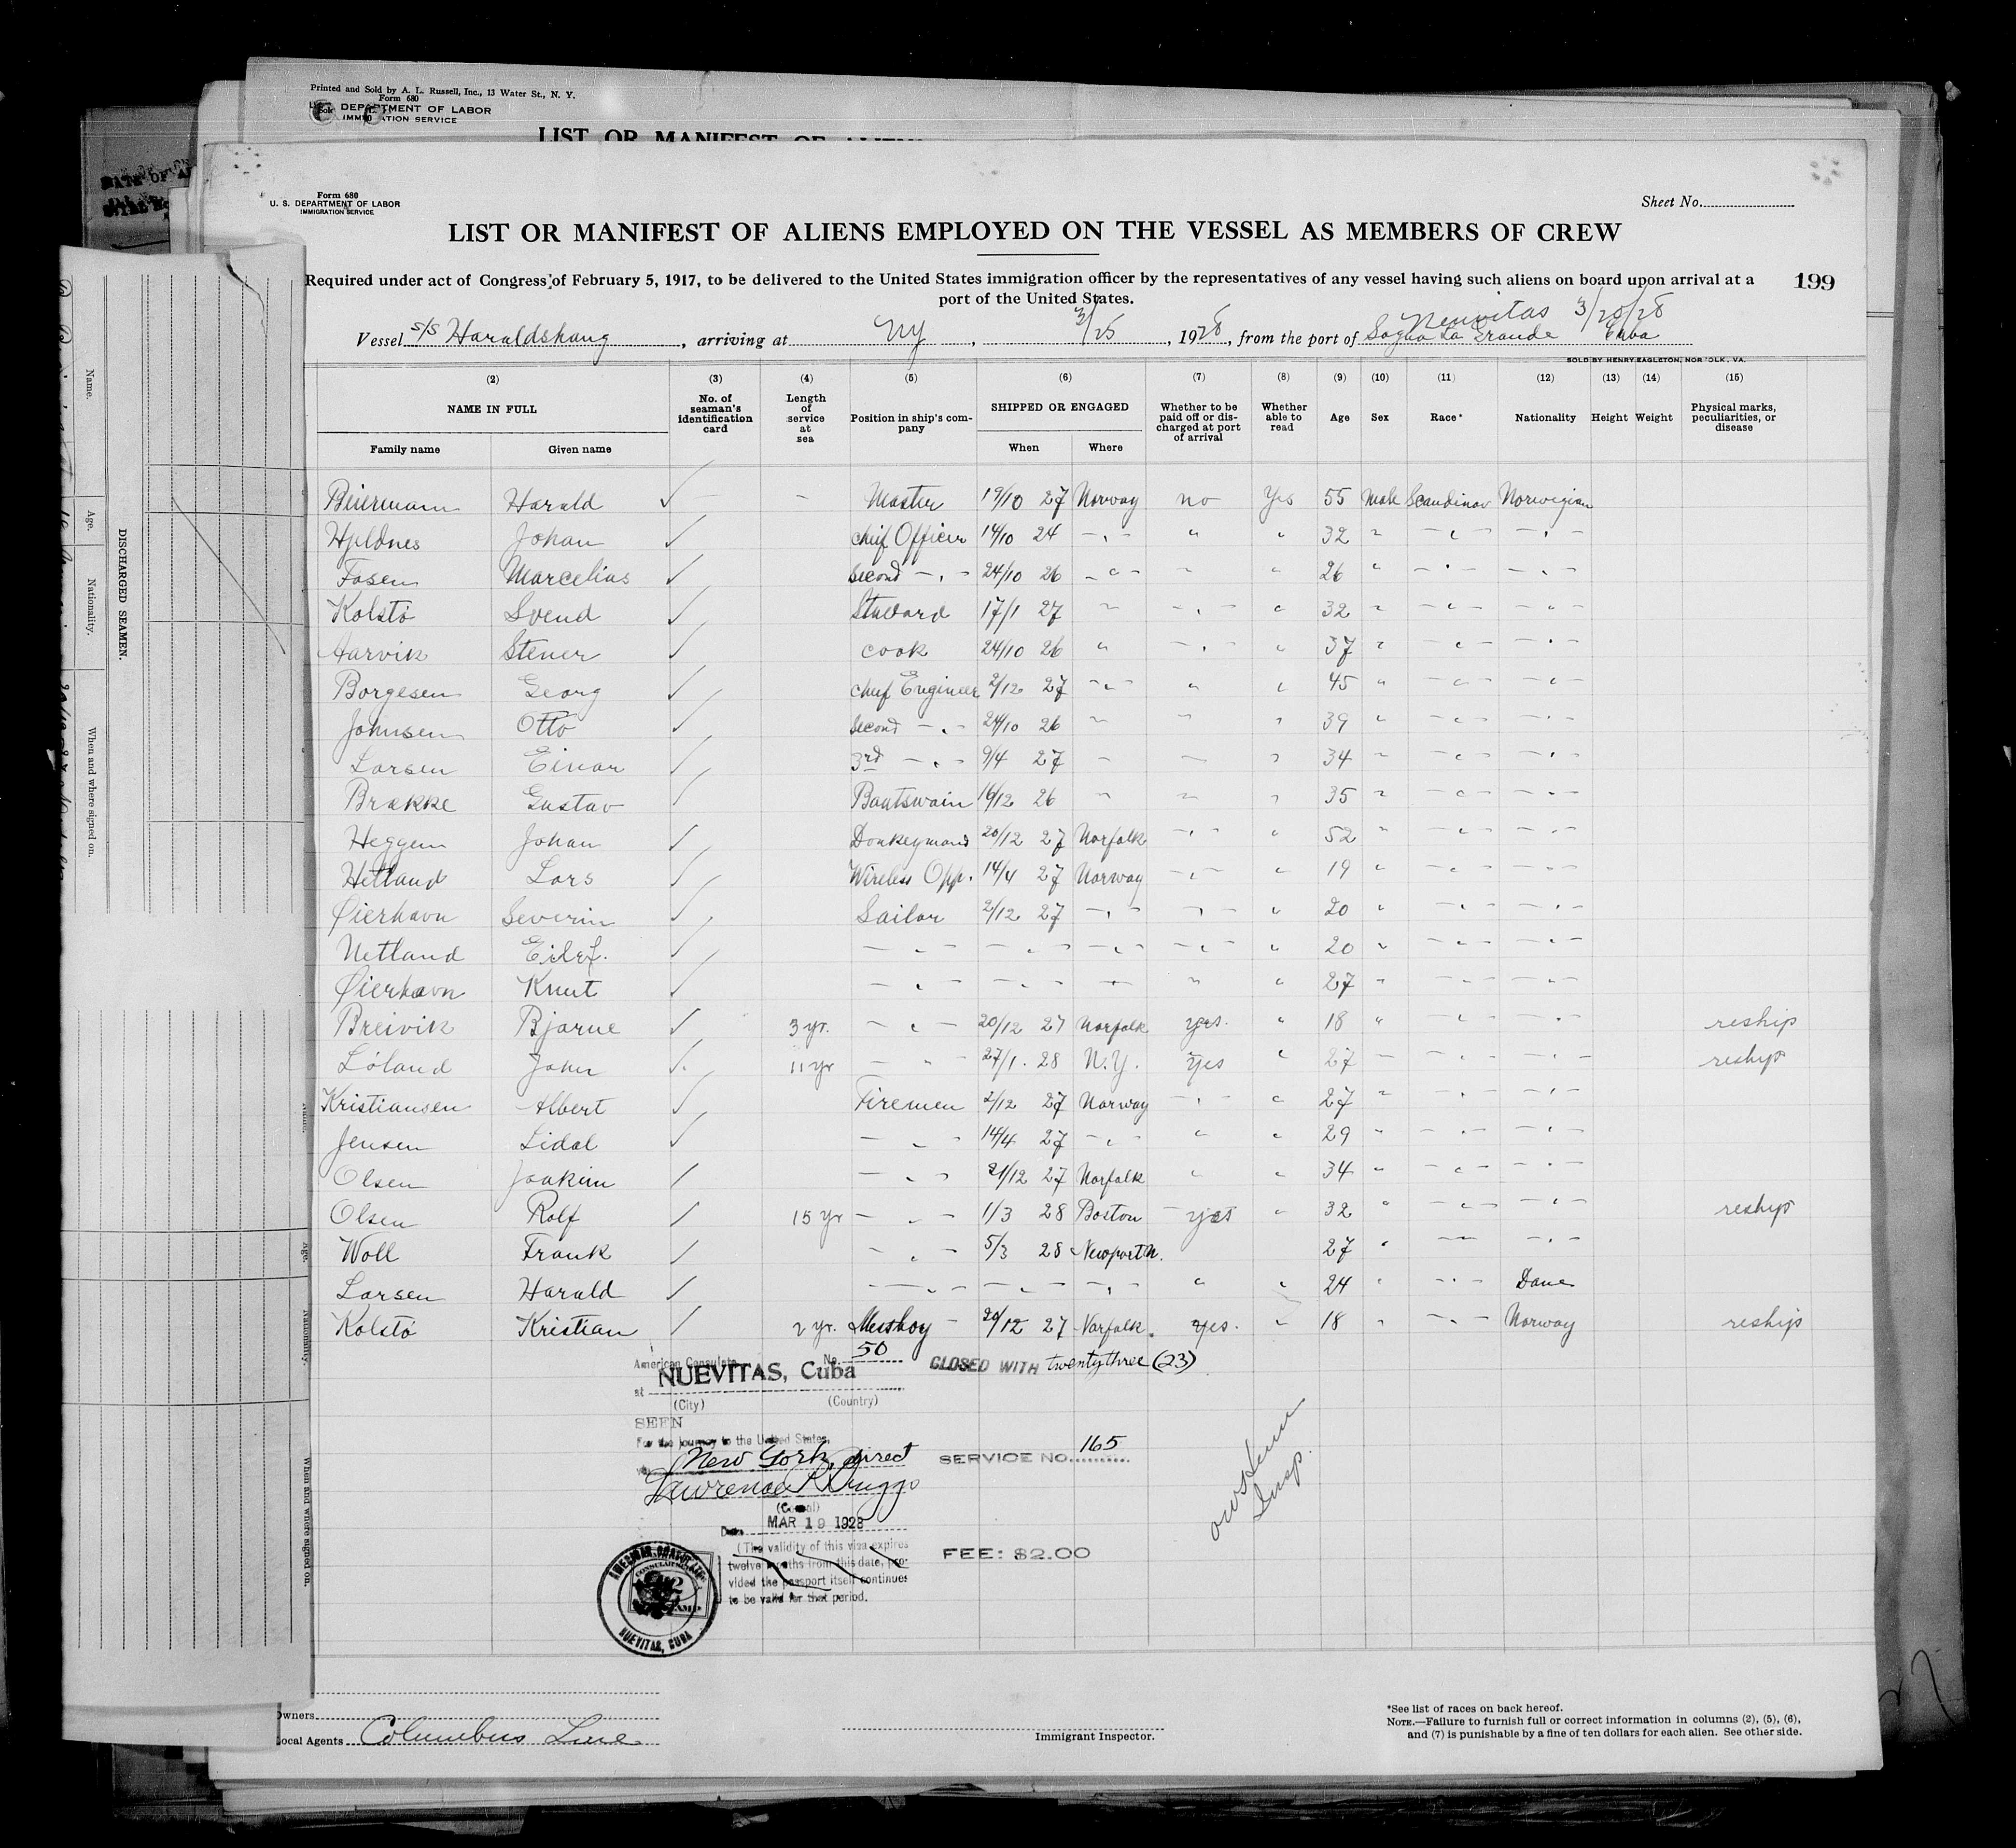 Printed and Sold by A. L. Russell, Inc., 13 Water St., N. Y.
Form 680
DEPARTMENT OF LABOR
LIST OR MANIFEST OF
Form 680
U. S. DEPARTMENT OF LABOR
IMMIGRATION SERVICE
Sheet No.
LIST OR MANIFEST OF ALIENS EMPLOYED ON THE VESSEL AS MEMBERS OF CREW
Required under act of Congress of February 5, 1917, to be delivered to the United States immigration officer by the representatives of any vessel having such aliens on board upon arrival at a
port of the United States.
199
Nenvitas 3/25/28
Vessel S/S Haraldshaug, arriving at NY, 3/25, 1928, from the port of Sagua La Grande Cuba
SOLD BY HENRY EAGLETON, NORFOLK, VA.
(2) (3) (4) (5) (6) (7) (8) (9) (10) (11) (12) (13) (14) (15)
NAME IN FULL No. of seaman's identification card Length of service at sea Position in ship's company SHIPPED OR ENGAGED Whether to be paid off or discharged at port of arrival Whether able to read Age Sex Race* Nationality Height Weight Physical marks, peculiarities, or disease
Family name Given name When Where
Beiermann Harald ✓ - - Master 19/10 27 Norway no Yes 55 Male Scandinav Norwegian
Hjeldnes Johan ✓ chief Officer 14/10 24 -"- " " 32 " -"- -"-
Fosen Marcelius ✓ Second -"- 24/10 26 -"- " " 26 " -"- -"-
Kolstö Svend ✓ Steward 17/1 27 " -"- " 32 " -"- -"-
Aarvik Stener ✓ cook 24/10 26 " -"- " 37 " -"- -"-
Borgesen Georg ✓ chief Engineer 2/12 27 -"- " " 45 " -"- -"-
Johnsen Otto ✓ Second -"- 24/10 26 " " " 39 " -"- -"-
Larsen Einar ✓ 3rd -"- 9/4 27 " " " 34 " -"- -"-
Brække Gustav ✓ Boatswain 16/12 26 " " " 35 " -"- -"-
Heggem Johan ✓ Donkeymand 20/12 27 Norfolk -"- " 52 " -"- -"-
Hetland Lars ✓ Wireless Opp. 14/4 27 Norway -"- " 19 " -"- -"-
Øierhavn Severin ✓ Sailor 2/12 27 -"- -"- " 20 " -"- -"-
Netland Eilef. ✓ -"- -"- -"- -"- " 20 " -"- -"-
Øierhavn Knut ✓ -"- -"- -"- " " 27 " -"- -"-
Breivik Bjarne ✓ 3 yr. -"- 20/12 27 Norfolk yes. " 18 " -"- -"- reship
Löland John ✓ 11 yr -"- 27/1. 28 N.Y. Yes " 27 " -"- -"- reship
Kristiansen Albert ✓ Firemen 2/12 27 Norway -"- " 27 " -"- -"-
Jensen Lidal ✓ -"- 14/4 27 -"- " " 29 " -"- -"-
Olsen Joakim ✓ -"- 21/12 27 Norfolk " " 34 " -"- -"-
Olsen Rolf ✓ 15 yr -"- 1/3 28 Boston yes " 32 " -"- -"- reship
Woll Frank ✓ -"- 5/3 28 Newport N. 27 " -"- -"-
Larsen Harald ✓ -"- -"- -"- " " 24 " -"- Dane
Kolstö Kristian ✓ 2 yr. Messboy - 20/12 27 Norfolk. yes. " 18 " -"- Norway reship
American Consulate No. 50
CLOSED WITH twentythree (23)
at NUEVITAS, Cuba
(City) (Country)
SEEN
For the journey to the United States.
via New York, direct
SERVICE NO. 165
(Consul)
Date MAR 19 1928
(The validity of this visa expires
twelve months from this date, pro-
vided the passport itself continues
to be valid for that period.
FEE: $2.00
Insp.
AMERICAN CONSULATE
NUEVITAS, CUBA
Owners
Local Agents Columbus Line
Immigrant Inspector.
*See list of races on back hereof.
NOTE.—Failure to furnish full or correct information in columns (2), (5), (6),
and (7) is punishable by a fine of ten dollars for each alien. See other side.
DISCHARGED SEAMEN.
Name. Age. Nationality. When and where signed on.
Age. Nationality. When and where signed on.